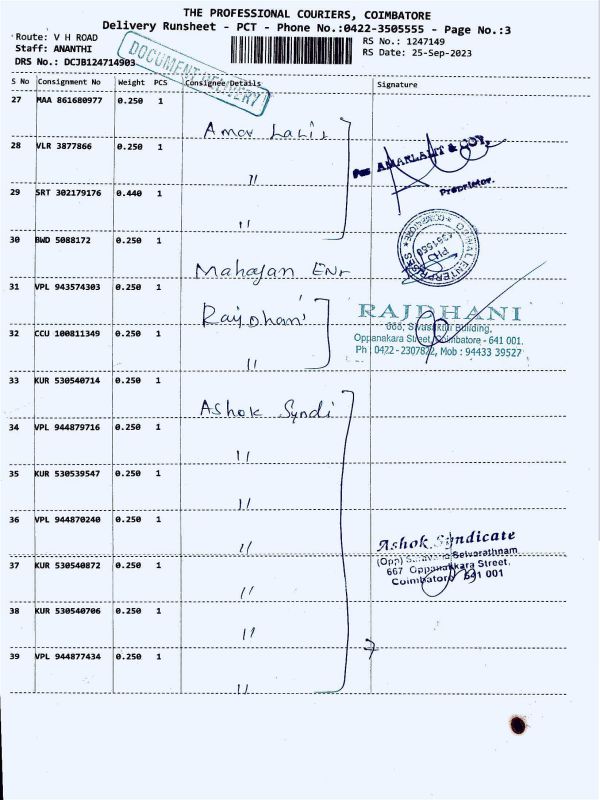 THE PROFESSIONAL COURIERS, COIMBATORE
Delivery Runsheet - PCT - Phone No.:0422-3505555 - Page No.:3
Route: V H ROAD
Staff: ANANTHI
DRS No.: DCJB124714903
RS No.: 1247149
RS Date: 25-Sep-2023
DOCUMENT DELIVERY
S No Consignment No Weight PCS Consignee/Details Signature
27 MAA 861680977 0.250 1
Amar Lalit
28 VLR 3877866 0.250 1
"
For AMARLALIT & COY,
Proprietor.
29 SRT 302179176 0.440 1
"
30 BWD 5088172 0.250 1
Mahajan Ent
31 VPL 943574303 0.250 1
Rajdhani
RAJDHANI
Building,
Oppanakara Street, Coimbatore - 641 001.
Ph : 0422 - 2307822, Mob : 94433 39527
32 CCU 100811349 0.250 1
"
33 KUR 530540714 0.250 1
Ashok Syndi
34 VPL 944879716 0.250 1
"
35 KUR 530539547 0.250 1
"
36 VPL 944870240 0.250 1
"
Ashok Syndicate
(Opp) Selvarathnam
667 Oppanakkara Street,
Coimbatore 641 001
37 KUR 530540872 0.250 1
"
38 KUR 530540706 0.250 1
"
39 VPL 944877434 0.250 1
"